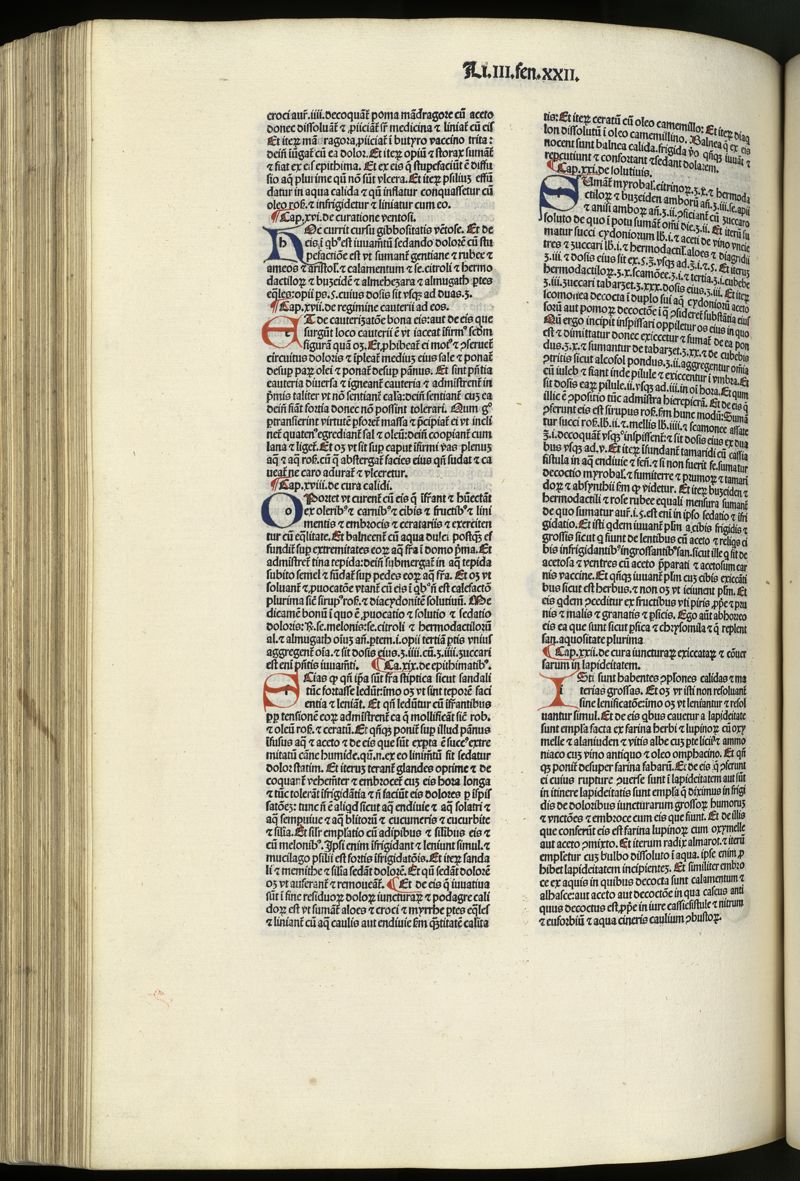 Li.III.fen.XXII.
croci aur̃.iiii.decoquãt̃ poma mãdragore cũ aceto
donec dissoluãt̃ ⁊ ꝓiiciãt̃ sr̃ medicina ⁊ liniat̃ cũ eis
Et iteꝝ mã ragora,ꝓiiciat̃ ĩ butyro vaccino trita:
dein̄ iũgat̃ cũ ea dolor. Et iteꝝ opiũ ⁊ storax sumãt̃
⁊ fiat ex eis epithima. Et ex eis q̃ stupefaciũt ẽ diffu
sio aq̃ plurime qñ nõ sũt vlcera. Et iteꝝ psiliuz effũ
datur in aqua calida ⁊ qñ inflatur conquassetur cũ
oleo ros̃. ⁊ infrigidetur ⁊ liniatur cum eo.
¶ Cap.xvi.de curatione ventosi.
h
He currit cursu gibbositatis vẽtose. Et de
eis,i qbꝰ est iuuamẽtũ sedando dolorẽ cũ stu
pefactiõe est vt sumant̃ gentiane ⁊ rubee ⁊
ameos ⁊ aristol̃.⁊ calamentum ⁊ se.citroli ⁊ hermo
dactiloꝝ ⁊ buzeidẽ ⁊ almehezara ⁊ almugath ꝑtes
eq̃les:opii ꝑs.s.cuius dosis sit vsq̃ ad duas.ʒ.
¶ Cap.xvii.de regimine cauterii ad eos.
e
AT de cauterizatõe bona eis:aut de eis que
surgũt loco cauterii ẽ vt iaceat ĩfirmꝰ scd̃m
figurã quã oʒ. Et,ꝓhibeat̃ ei motꝰ ⁊ ꝓseruet̃
circuitus doloris ⁊ ĩpleat̃ mediuʒ eius sale ⁊ ponat̃
desuꝑ paꝝ olei ⁊ ponat̃ desuꝑ pãnus. Et sint pñtia
cauteria diuersa ⁊ igneant̃ cauteria ⁊ admistrent̃ in
pͥmis taliter vt nõ sentiant̃ cal̃a:dein̄ sentiant̃ cuʒ ea
dein̄ fiãt fortia donec nõ possint tolerari. Qum gͦ
ptransierint virtutẽ pforet̃ massa ⁊ p̃cipiat̃ ei vt incli
net quatenꝰ egrediant̃ sal ⁊ oleũ:dein̄ coopiant̃ cum
lana ⁊ liget̃. Et oʒ vt sit suꝑ caput ĩfirmi vas plenuʒ
aq̃ ⁊ aq̃ ros̃. cũ q̃ abstergat̃ facies eius qñ sudat ⁊ ca
ueat̃ ne caro adurat̃ ⁊ vlceretur.
¶ Cap.xviii.de cura calidi.
o
Oportet vt curent̃ cũ eis q̃ ĩfr̃ant ⁊ hũectãt
ex oleribꝰ ⁊ carnibꝰ ⁊ cibis ⁊ fructibꝰ ⁊ lini
mentis ⁊ embrocis ⁊ ceratariis ⁊ exerciten
tur cũ eq̃litate. Et balneent̃ cũ aqua dulci postq̃ʒ ef
fundit̃ suꝑ extremitates eoꝝ aq̃ fr̃a ĩ domo pͥma. Et
admistret̃ tina tepida:dein̄ submergat̃ in aq̃ tepida
subito semel ⁊ fũdat̃ suꝑ pedes eoꝝ aq̃ fr̃a. Et oʒ vt
soluant̃ ⁊ ꝓuocatõe vtant̃ cũ eis ĩ qbꝰ ñ est calefactõ
plurima siẽ sirupꝰ ros̃. ⁊ diacydonitẽ solutiuũ. Me
dicamẽ bonũ ĩ quo ẽ ꝓuocatio ⁊ solutio ⁊ sedatio
doloris:℞.se.melonis:se.citroli ⁊ hermodactilorũ
al.⁊ almugath oĩuʒ añ.ptem.i.opii tertiã ptis vnius
aggregent̃ oĩa.⁊ sit dosis eius.ʒ.iiii.cũ.ʒ.iiii.zuccari
est eni pñtis iuuamẽti. ¶ Ca.xix.de epithimatibꝰ.
s
Scias ꝙ qñ ip̃a sũt fr̃a stiptica sicut sandali
tũc fortasse ledũt:ĩmo oʒ vt sint teporẽ faci
entia ⁊ leniãt̃. Et qñ ledũtur cũ ĩfr̃antibus
ꝓꝑ tensionẽ eoꝝ admistrent̃ ea q̃ mollificãt̃ siẽ rob.
⁊ oleũ ros̃.⁊ ceratũ. Et qñqʒ ponit̃ suꝑ illud pãnus
ĩfusus aq̃ ⁊ aceto ⁊ de eis que sũt expta ẽ succꝰ extre
mitatũ cãne humide.qñ.n.ex eo linimẽtũ sit sedatur
dolor statim. Et iteruʒ terant̃ glandes optime ⁊ de
coquant̃ vehemẽter ⁊ embrocet̃ cuʒ eis hora longa
⁊ tũc tolerãt ĩfrigidãtia ⁊ ñ faciũt eis dolores ꝑ ĩspis
satõeʒ: tunc ñ ẽ aliqd sicut aq̃ endiuie ⁊ aq̃ solatri ⁊
aq̃ sempuiue ⁊ aq̃ blitorũ ⁊ cucumeris ⁊ cucurbite
⁊ sil̃ia. Et sil̃r emplatio cũ adipibus ⁊ silibus eis ⁊
cũ melonibꝰ. Ipsi enim ĩfrigidant ⁊ leniunt simul.⁊
mucilago psilii est fortis ĩfrigidatõis. Et iteꝝ sanda
li ⁊ memithe ⁊ silia sedãt dolorẽ. Et qñ sedãt dolorẽ
oʒ vt auferant̃ ⁊ remoueãt̃. ¶ Et de eis q̃ iuuatiua
sũt ĩ fine residuoꝝ doloꝝ iuncturaꝝ ⁊ podagre cali
doꝝ est vt sumãt̃ aloes ⁊ croci ⁊ myrrhe ꝑtes eq̃les
⁊ liniant̃ cũ aq̃ caulis aut endiuie s̃m q̃titatẽ calita
tis: Et iteꝝ ceratũ cũ oleo camemillo: Et iteꝝ diaq̃
lon dissolutũ ĩ oleo camemillino. Balnea q̃ ex eis
nocent sunt balnea calida.frigida ṽo qñqʒ iuuãt ⁊
repcutiunt ⁊ confortant ⁊sedant dolarem.
¶ Cap.xxi.de solutiuis.
s
Sumãt̃ myrobal.citrinoꝝ.ʒ.x.⁊ hermoda
ctiloꝝ ⁊ buzeiden amborũ añ.ʒ.iii.se.apii
⁊ anisi amboꝝ añ.ʒ.ii.ꝯficiant̃ cũ zuccaro
soluto de quo ĩ potu sumãt̃ omi die.ʒ.ii. Et iterũ su
matur succi cydoniorum lb̃.i.⁊ aceti de vino vncie
tres ⁊ zuccari lb̃.i.⁊ hermodactil̃.aloes ⁊ diagridii
ʒ.iii ⁊ dosis eius sit ex.s.ʒ.vsqʒ ad.ʒ.i.⁊.s. Et iteruʒ
hermodactiloꝝ.ʒ.x.scamõee.ʒ.i.⁊ tertia.ʒ.i.cubebe
ʒ.iii.zuccari tabarzet.ʒ.xxx.dosis eius.ʒ.iii. Et iteꝝ
scomonea decocta ĩ duplo sui aq̃ cydoniorũ aceto
sorũ aut pomoꝝ decoctõe ĩ q̃ ꝯsideret substãtia eius
Qñ ergo incipit inspissari oppiletur os eius in quo
est ⁊ dimittatur donec exiccetur ⁊ sumat̃ de ea pon
dus.ʒ.x.⁊ sumantur de tabarzet.ʒ.xx.⁊ de cubebis
ꝯtritis sicut alcosol pondus.ʒ.ii.aggregentur omnia
cũ iuleb ⁊ fiant inde pilule ⁊ exiccentur ĩ vmbra. Et
sit dosis eaꝝ pilule.ii.vsqʒ ad.iii.in oĩ hora. Et qum
illic ẽ ꝯpositio tũc admistra hierepicrã. Et de eis q̃
ꝯferunt eis est sirupus ros̃. s̃m hunc modũ: Sumã
tur succi ros̃.lb̃.ii.⁊.mellis lb̃.iiii.⁊ scamonee assate
ʒ.i.decoquãt̃ vsqʒ inspissent̃.⁊ sit dosis eius ex dua
bus vsqʒ ad.v. Et iteꝝ ĩfundant̃ tamaridi cũ cassia
fistula in aq̃ endiuie ⁊ feñ.⁊ si non fuerit fe.sumatur
decoctio myrobal̃.⁊ sumiterre ⁊ prunoꝝ ⁊ tamari
doꝝ ⁊ absynthii s̃m ꝙ videtur. Et iteꝝ buzeiden ⁊
hermodactili ⁊ rose rubee equali mensura sumant̃
de quo sumatur aur̃.i.s.est eni in ipso sedatio ⁊ ĩfri
gidatio. Et isti qdem iuuant̃ plm̃ a,cibis frigidis ⁊
grossis sicut q̃ fiunt de lentibus cũ aceto ⁊ reliq̃s ci
bis infrigidantibꝰingrossantibꝰsan.sicut ille q̃ sit de
acetosa ⁊ ventres cũ aceto ꝓparati ⁊ acetosum car
nis vaccine. Et qñqʒ iuuant̃ plm̃ cuʒ cibis exiccãti
bus sicut est herbus.⁊ non oʒ vt ieiunent plm̃. Et
eis qdem ꝯceditur ex fructibus vti piris ꝓpe ⁊ pru
nis ⁊ malis ⁊ granatis ⁊ psicis. Ego aũt abhorreo
eis ea que sunt sicut psica ⁊ chrysomila ⁊ q̃ replent
san.aquositate plurima
¶ Cap.xxii.de cura iuncturaꝝ exiccataꝝ ⁊ cõuer
sarum in lapideitatem.
i
ISti sunt habentes ꝯplsones calidas ⁊ ma
terias grossas. Et oʒ vt isti non resoluant̃
sine lenificatõe:ĩmo oʒ vt leniantur ⁊ resol
uantur simul. Et de eis qbus cauetur a lapideitate
sunt empl̃a facta ex farina herbi ⁊ lupinoꝝ cũ oxy
melle ⁊ alaniuden ⁊ vitis albe cuʒ pte liciiꝰ ⁊ ammo
niaco cuʒ vino antiquo ⁊ oleo omphacino. Et qñ
qʒ ponit̃ desuper farina fabarũ. Et de eis q̃ ꝯferunt
ei cuius rupture ꝯuerse sunt ĩ lapideitatem aut sũt
in itinere lapideitatis sunt empl̃a q̃ diximus in frigi
dis de doloribus iuncturarum grossoꝝ humoruʒ
⁊ vnctões ⁊ embroce cum eis que fiunt. Et de illis
que conferũt eis est farina lupinoꝝ cum oxymelle
aut aceto ꝯmixto. Et iterum radix almarot.⁊ iterũ
empletur cuʒ bulbo dissoluto ĩ aqua. ipse enim ꝓ
hibet lapideitatem incipientez. Et similiter embro
ce ex aquis in quibus decocta sunt calamentum ⁊
albasce:aut aceto aut decoctõe in qua caseus anti
quus decoctus est,ꝓpe in iure cassiefistule ⁊ nitrum
⁊ euforbiũ ⁊ aqua cineris caulium ꝯbustoꝝ.